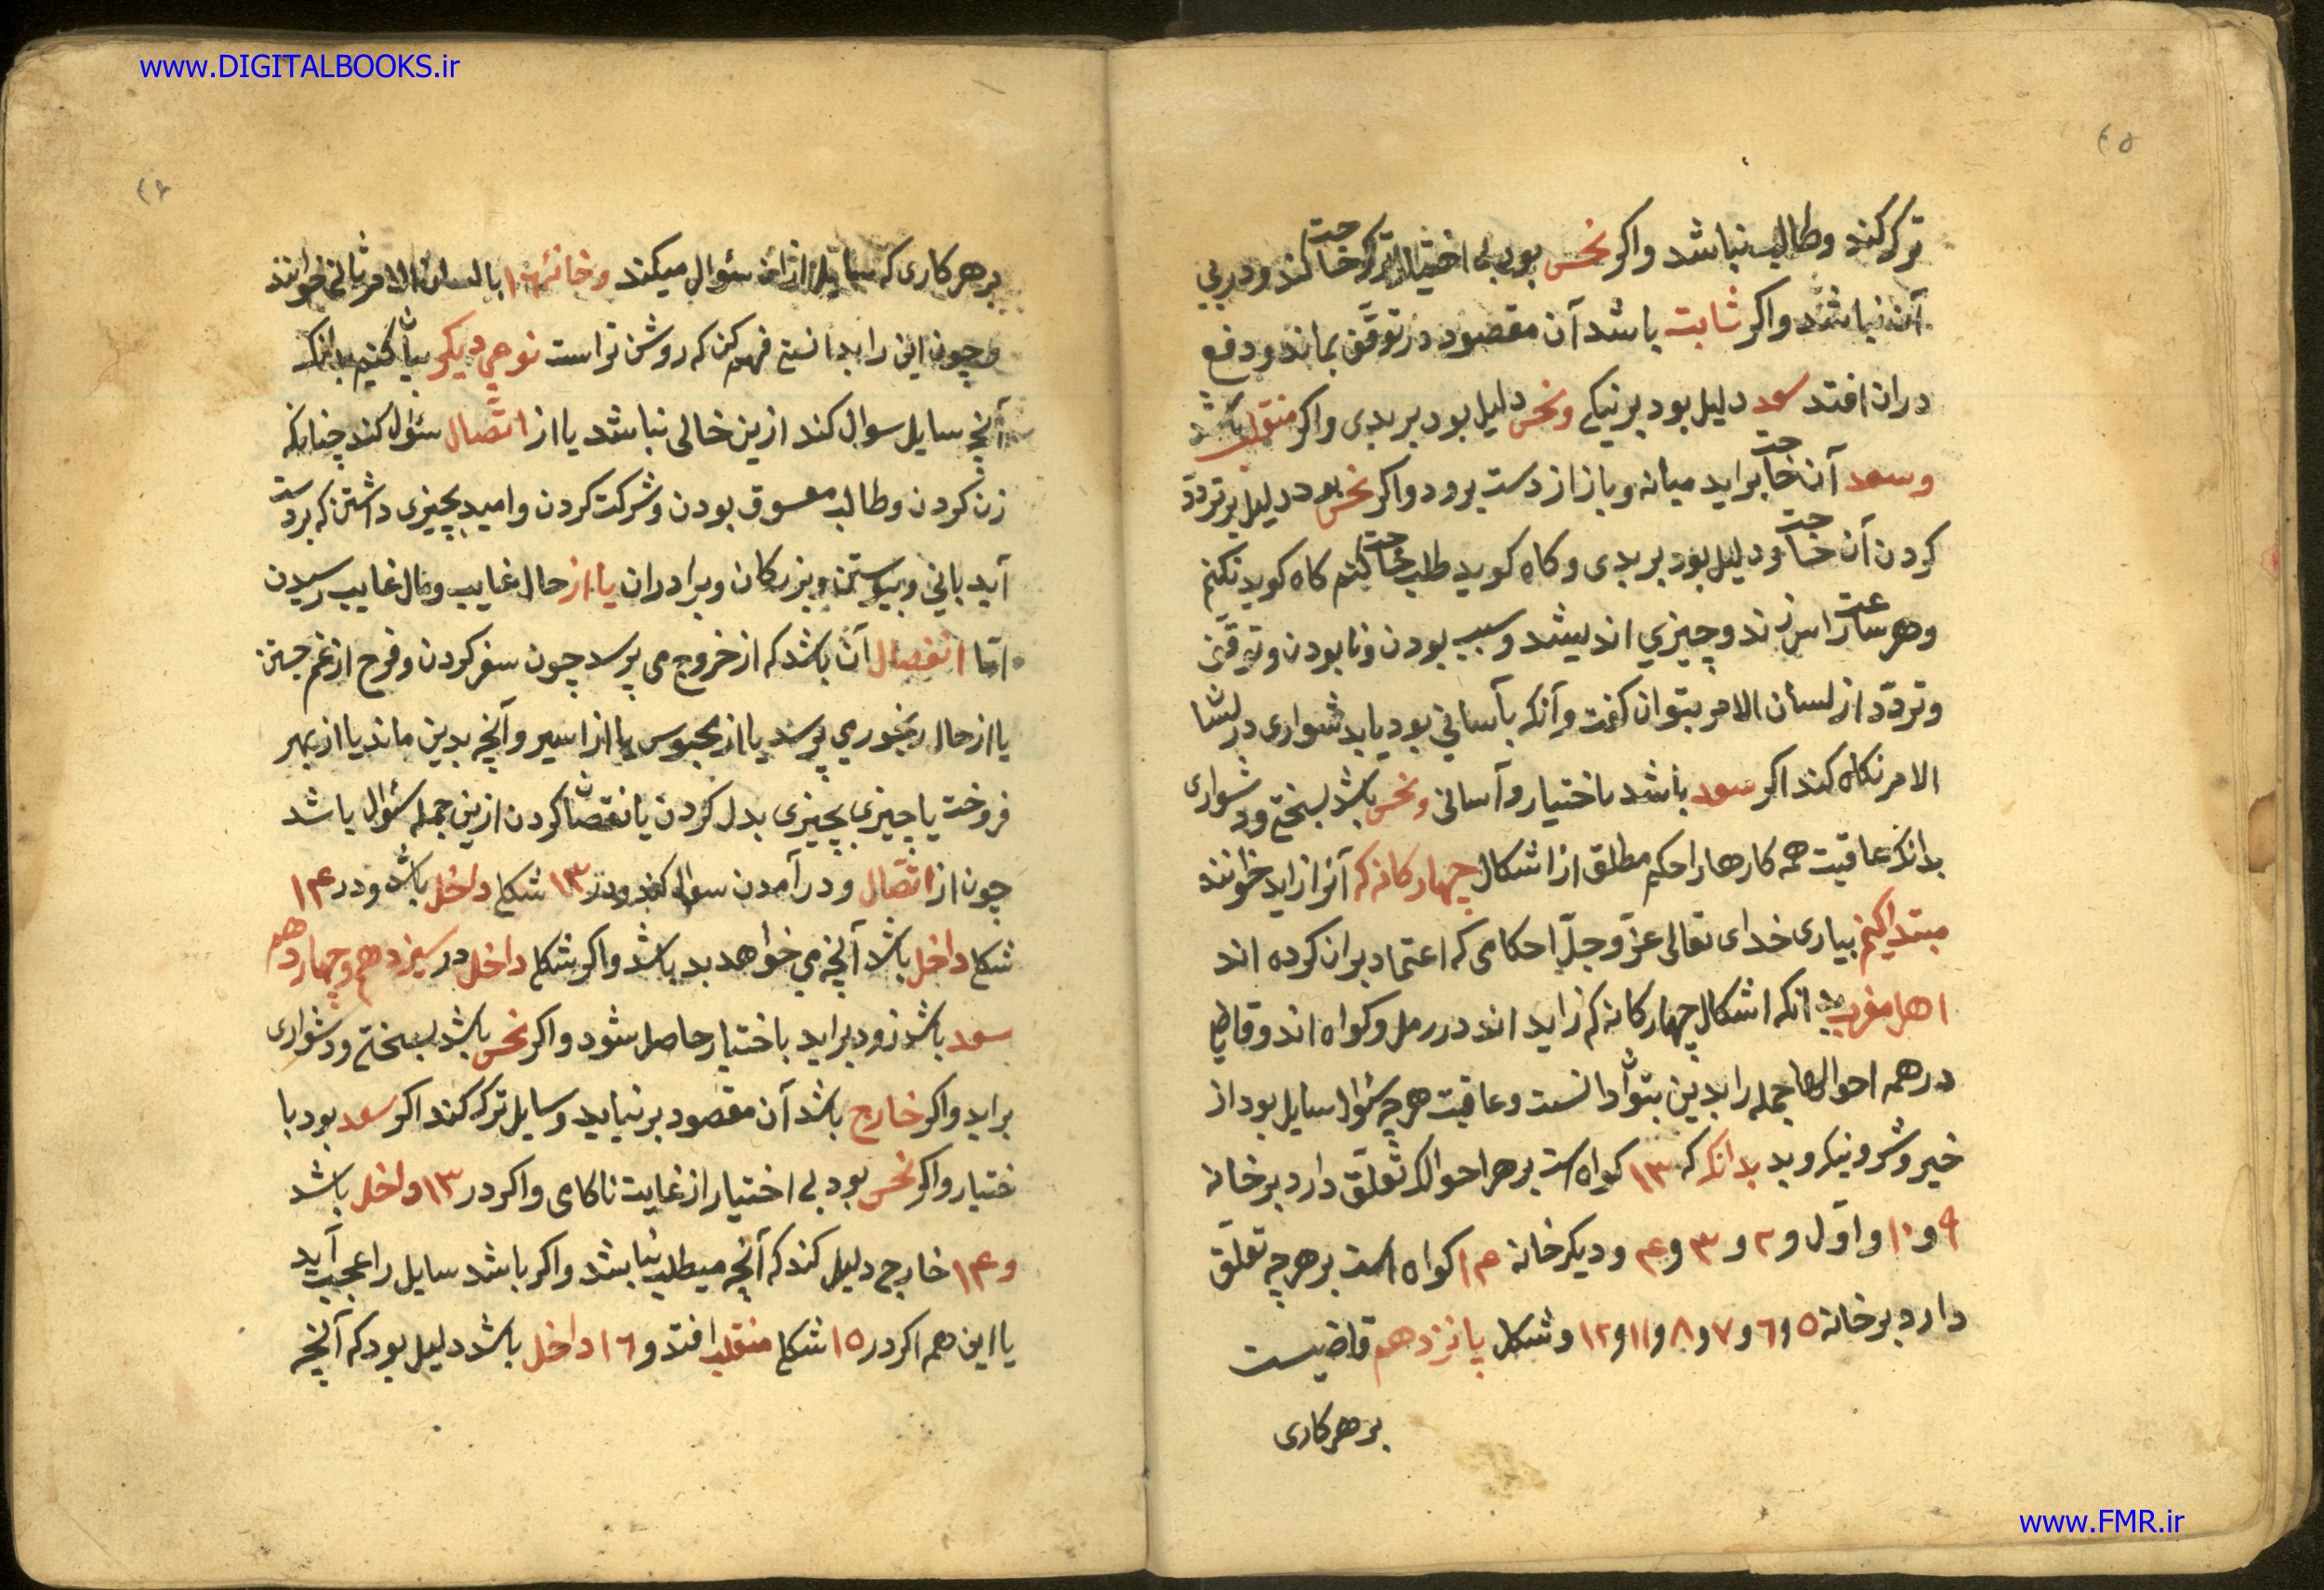 www.DIGITALBOOKS.ir
ترک کند و طالب نباشد واکر نحس بود بی اختیار ترک حاجت کند ودر پی
آن نباشد واکر ثابت باشد آن مقصود در توقف بماند ودفع
دران افتد سعد دلیل بود بر نیکی ونحس دلیل بود بر بدی واکر منقلب باشد
وسعد آن حاجت براید میانه وباز از دست برود واکر نحس بود دلیل بر تردد
کردن آن حاجت ودلیل بود بر بدی وکاه کوید طلب حاجت کنم کاه کوید نکنم
وهر ساعت راس زند وچیزی اندیشد وسبب بودن ونابودن وتوقف
وتردّد از لسان الامر بتوان کفت وآنکه بآسانی بود یا بدشواری در لسان
الامر نکاه کند اکر سعد باشد باختیار وآسانی ونحس باشد بسختی ودشواری
بدانکه عاقبت همه کارها را حکم مطلق از اشکال چهارکانه که آنرا زاید خوانند
مبتدا کنیم بیاری خدای تعالی عزّ وجلّ احکامی که اعتماد بران کرده اند
اهل مغرب بدانکه اشکال چهارکانه که زاید اند در رمل وکواه اند وقاضی
در همه احوالها جمله را بدین بتوان دانست وعاقبت هرچه سئوال سایل بود از
خیر وشر ونیک وبد بدانکه که ١٣ کواه است بر هر احوال که تعلّق دارد بر خانه
٩ و ١٠ واوّل و ٢ و ٣ و ۴ ودیکر خانه ١۴ کواه است بر هرچه تعلّق
دارد بر خانه ٥ و ٦ و ٧ و ٨ و ١١ و ١٢ وشکل پانزدهم قاضیست
بر هرکاری
بر هرکاری که سایل ازان سئوال میکند وخانهٔ ١٦ با لسان الامر ثانی خوانند
وچون این را بدانستی فهم کن که روشن تر است نوعی دیکر بیان کنیم بدانکه
آنچه سایل سوال کند ازین خالی نباشد یا از اتّصال سئوال کند چنانکه
زن کردن وطالب معشوق بودن وشرکت کردن وامید بچیزی داشتن که بردست
آید یا نی وپیوستن وبزرکان وبرادران یا از حال غایب ومال غایب رسیدن
امّا انفصال آن باشد که از خروج می پرسد چون سفر کردن وفرح از غم جستن
یا از حال رنجوری پرسد یا از محبوس یا از اسیر وآنچه بدین ماند یا از بهر
فروخت یا چیزی بچیزی بدل کردن یا نقصان کردن ازین جمله سئوال باشد
چون از اتّصال ودر آمدن سوال کند ودر ١٣ شکل داخل باشد ودر ١۴
شکل داخل باشد آنچه می خواهد بد باشد واکر شکل داخل در سیزدهم وچهاردهم
سعد باشد زود براید باختیار حاصل شود واکر نحس باشد بسختی ودشواری
براید واکر خارج باشد آن مقصود بر نیاید وسایل ترک کند اکر سعد بود با
ختیار واکر نحس بود بی اختیار از غایت ناکامی واکر در ١٣ داخل باشد
و ١۴ خارج دلیل کند که آنچه میطلبد نباشد واکر باشد سایل را عجب آید
یا این هم اکر در ١٥ شکل منقلب افتد و ١٦ داخل باشد دلیل بود که آنچه
www.FMR.ir